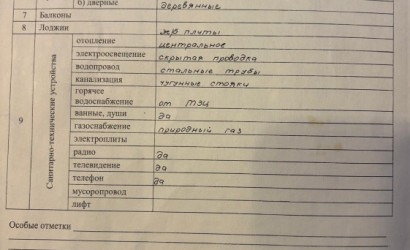 б) дверные деревянные
7 Балконы
8 Лоджии жб плиты
9 Санитарно-технические устройства
отопление центральное
электроосвещение скрытая проводка
водопровод стальные трубы
канализация чугунные стояки
горячее
водоснабжение от ТЭЦ
ванные, души да
газоснабжение природный газ
электроплиты
радио да
телевидение да
телефон да
мусоропровод
лифт
Особые отметки